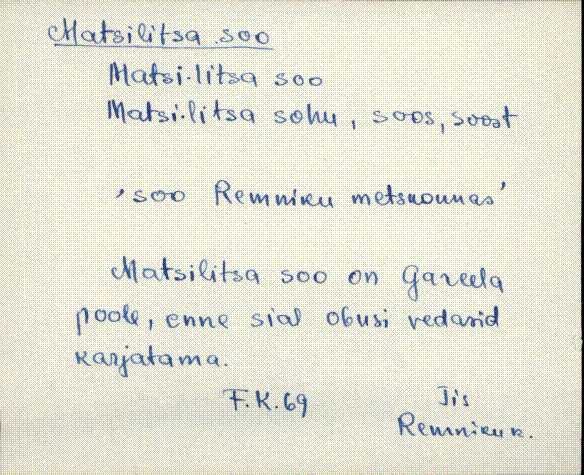 Matsilitsa soo
Matsi·litsa soo
Matsi·litsa sohu, soos, soost
'soo Remniku metskonnas'
Matsilitsa soo on Gareela
poole, enne sial obusi vedasid
karjatama.
F.K.69
Jis
Remniku k.